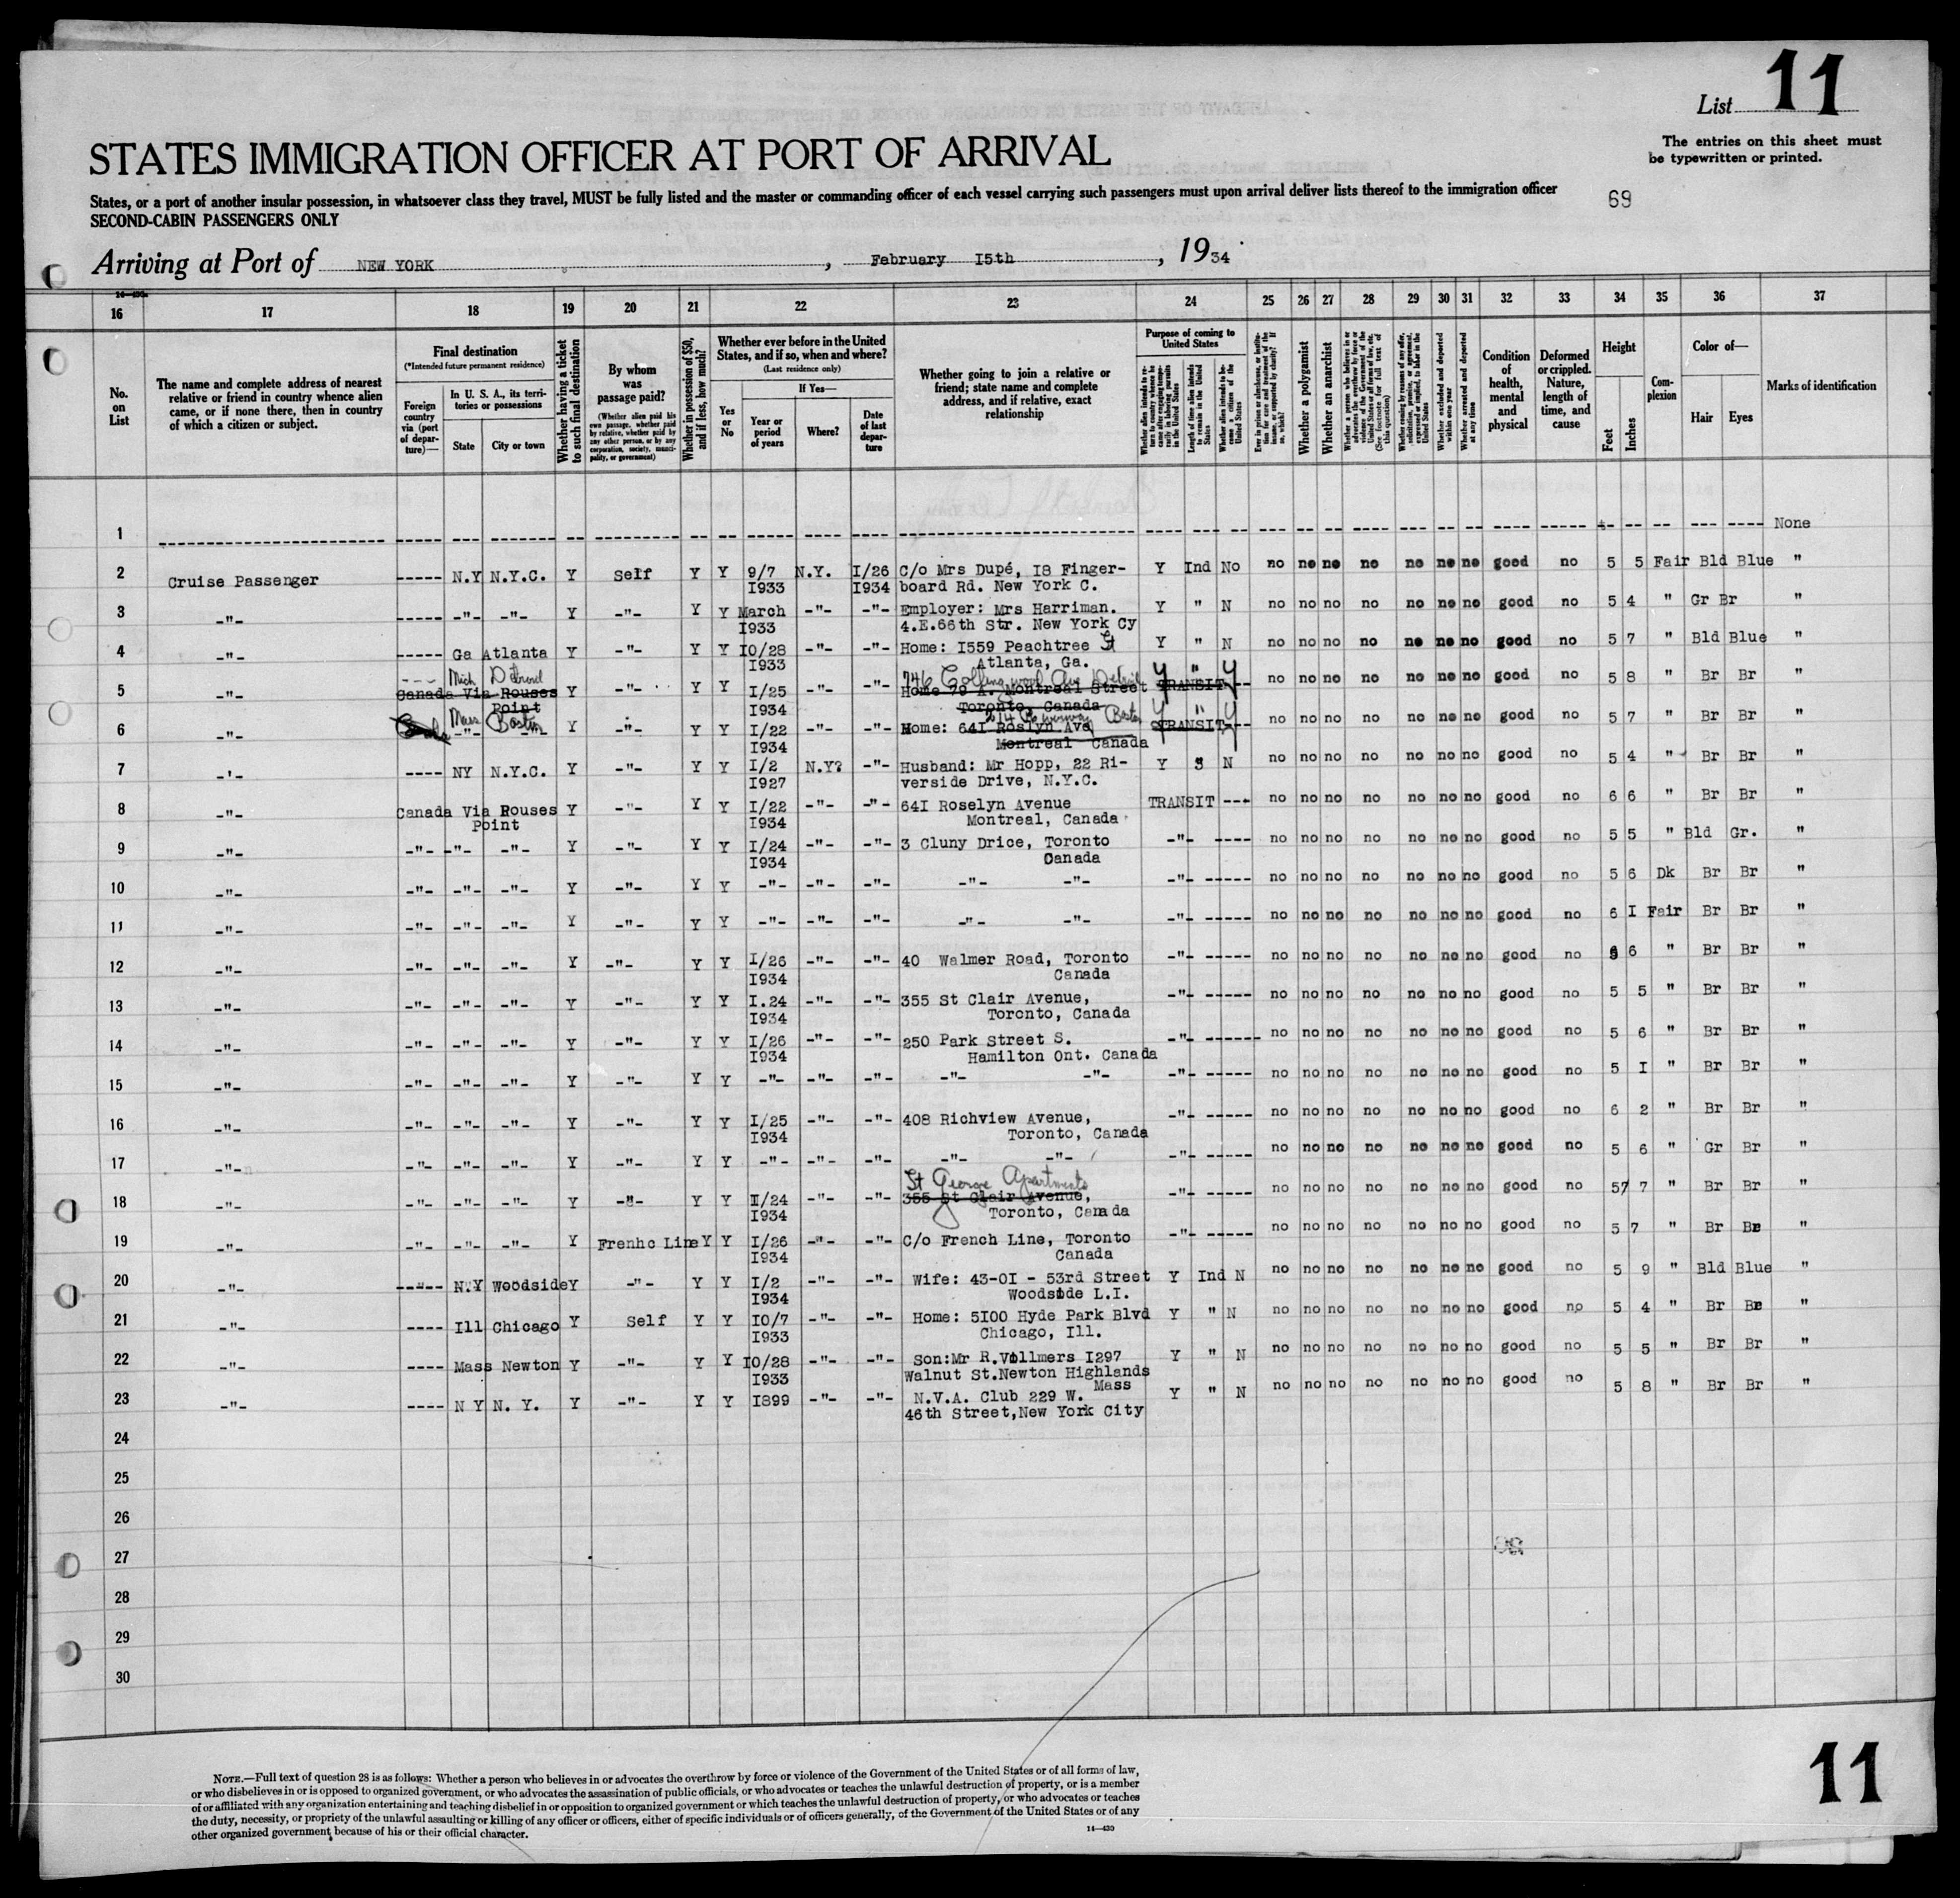 List 11
The entries on this sheet must
be typewritten or printed.
STATES IMMIGRATION OFFICER AT PORT OF ARRIVAL
States, or a port of another insular possession, in whatsoever class they travel, MUST be fully listed and the master or commanding officer of each vessel carrying such passengers must upon arrival deliver lists thereof to the immigration officer
69
SECOND-CABIN PASSENGERS ONLY
Arriving at Port of NEW YORK, February I5th, 1934
16 17 18 19 20 21 22 23 24 25 26 27 28 29 30 31 32 33 34 35 36 37
No. on List
The name and complete address of nearest relative or friend in country whence alien came, or if none there, then in country of which a citizen or subject.
Final destination
(*Intended future permanent residence)
Foreign country via (port of departure)—
In U. S. A., its territories or possessions
State
City or town
Whether having a ticket to such final destination
By whom was passage paid?
(Whether alien paid his own passage, whether paid by relative, whether paid by any other person, or by any corporation, society, municipality, or government)
Whether in possession of $50, and if less, how much?
Whether ever before in the United States, and if so, when and where?
(Last residence only)
Yes or No
If Yes—
Year or period of years
Where?
Date of last departure
Whether going to join a relative or friend; state name and complete address, and if relative, exact relationship
Purpose of coming to United States
Length of time alien intends to remain in the United States
Whether alien intends to become a citizen of the United States
Whether a polygamist
Whether an anarchist
(See footnote for full text of this question)
Whether excluded and deported within one year
Whether arrested and deported at any time
Condition of health, mental and physical
Deformed or crippled. Nature, length of time, and cause
Height
Feet
Inches
Complexion
Color of—
Hair
Eyes
Marks of identification
1 None
2 Cruise Passenger ----- N.Y N.Y.C. Y Self Y Y 9/7 N.Y. I/26 C/o Mrs Dupé, I8 Finger- Y Ind No no no no no no no no good no 5 5 Fair Bld Blue "
I933 I934 board Rd. New York C.
3 -"- ----- -"- -"- Y -"- Y Y March -"- -"- Employer: Mrs Harriman. Y " N no no no no no no no good no 5 4 " Gr Br "
I933 4.E.66th Str. New York Cy
4 -"- ----- Ga Atlanta Y -"- Y Y IO/28 -"- -"- Home: I559 Peachtree St Y " N no no no no no no no good no 5 7 " Bld Blue "
I933 Atlanta, Ga.
--- Mich Detroit 746 Collingwood Ave Detroit Y " Y
5 -"- Canada Via Rouses Y -"- Y Y I/25 -"- -"- Home 79 A. Montreal Street TRANSIT no no no no no no no good no 5 8 " Br Br "
Point I934 Toronto, Canada
Mass Boston Boston Y " Y
6 -"- -"- Y -"- Y Y I/22 -"- -"- Home: 64I Roslyn Ave TRANSIT no no no no no no no good no 5 7 " Br Br "
I934 Montreal Canada
7 -"- ---- NY N.Y.C. Y -"- Y Y I/2 N.Y? -"- Husband: Mr Hopp, 22 Ri- Y 3 N no no no no no no no good no 5 4 " Br Br "
I927 verside Drive, N.Y.C.
8 -"- Canada Via Rouses Y -"- Y Y I/22 -"- -"- 64I Roselyn Avenue TRANSIT --- no no no no no no no good no 6 6 " Br Br "
Point I934 Montreal, Canada
9 -"- -"- -"- -"- Y -"- Y Y I/24 -"- -"- 3 Cluny Drice, Toronto -"- ---- no no no no no no no good no 5 5 " Bld Gr. "
I934 Canada
10 -"- -"- -"- -"- Y -"- Y Y -"- -"- -"- -"- -"- -"- ----- no no no no no no no good no 5 6 Dk Br Br "
11 -"- -"- -"- -"- Y -"- Y Y -"- -"- -"- -"- -"- -"- ----- no no no no no no no good no 6 I Fair Br Br "
12 -"- -"- -"- -"- Y -"- Y Y I/26 -"- -"- 40 Walmer Road, Toronto -"- ----- no no no no no no no good no 6 " Br Br "
I934 Canada
13 -"- -"- -"- -"- Y -"- Y Y I.24 -"- -"- 355 St Clair Avenue, -"- ----- no no no no no no no good no 5 5 " Br Br "
I934 Toronto, Canada
14 -"- -"- -"- -"- Y -"- Y Y I/26 -"- -"- 250 Park Street S. -"- ------ no no no no no no no good no 5 6 " Br Br "
I934 Hamilton Ont. Canada
15 -"- -"- -"- -"- Y -"- Y Y -"- -"- -"- -"- -"- -"- ----- no no no no no no no good no 5 I " Br Br "
16 -"- -"- -"- -"- Y -"- Y Y I/25 -"- -"- 408 Richview Avenue, -"- ----- no no no no no no no good no 6 2 " Br Br "
I934 Toronto, Canada
17 -"- -"- -"- -"- Y -"- Y Y -"- -"- -"- -"- -"- -"- ----- no no no no no no no good no 5 6 " Gr Br "
St George Apartments
18 -"- -"- -"- -"- Y -"- Y Y I/24 -"- -"- 355 St Clair Avenue, -"- ----- no no no no no no no good no 57 7 " Br Br "
I934 Toronto, Canada
19 -"- -"- -"- -"- Y Frenhc Line Y Y I/26 -"- -"- C/o French Line, Toronto -"- ----- no no no no no no no good no 5 7 " Br Br "
I934 Canada
20 -"- ----- N.Y Woodside Y -"- Y Y I/2 -"- -"- Wife: 43-OI - 53rd Street Y Ind N no no no no no no no good no 5 9 " Bld Blue "
I934 Woodside L.I.
21 -"- ---- Ill Chicago Y Self Y Y IO/7 -"- -"- Home: 5IOO Hyde Park Blvd Y " N no no no no no no no good no 5 4 " Br Br "
I933 Chicago, Ill.
22 -"- ---- Mass Newton Y -"- Y Y IO/28 -"- -"- Son:Mr R.Vollmers I297 Y " N no no no no no no no good no 5 5 " Br Br "
I933 Walnut St.Newton Highlands
Mass
23 -"- ---- N Y N. Y. Y -"- Y Y I899 -"- -"- N.V.A. Club 229 W. Y " N no no no no no no no good no 5 8 " Br Br "
46th Street,New York City
24
25
26
27
28
29
30
NOTE.—Full text of question 28 is as follows: Whether a person who believes in or advocates the overthrow by force or violence of the Government of the United States or of all forms of law,
or who disbelieves in or is opposed to organized government, or who advocates the assassination of public officials, or who advocates or teaches the unlawful destruction of property, or is a member
of or affiliated with any organization entertaining and teaching disbelief in or opposition to organized government or which teaches the unlawful destruction of property, or who advocates or teaches
the duty, necessity, or propriety of the unlawful assaulting or killing of any officer or officers, either of specific individuals or of officers generally, of the Government of the United States or of any
other organized government because of his or their official character.
14—430
11